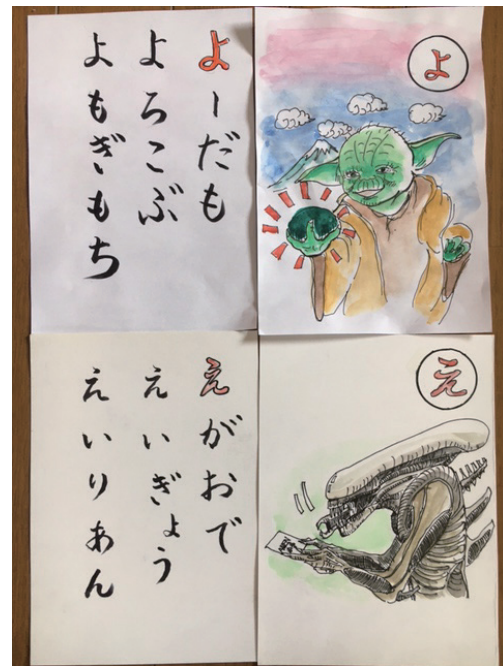 よーだも
よろこぶ
よもぎもち
よ
えがおで
えいぎょう
えいりあん
え